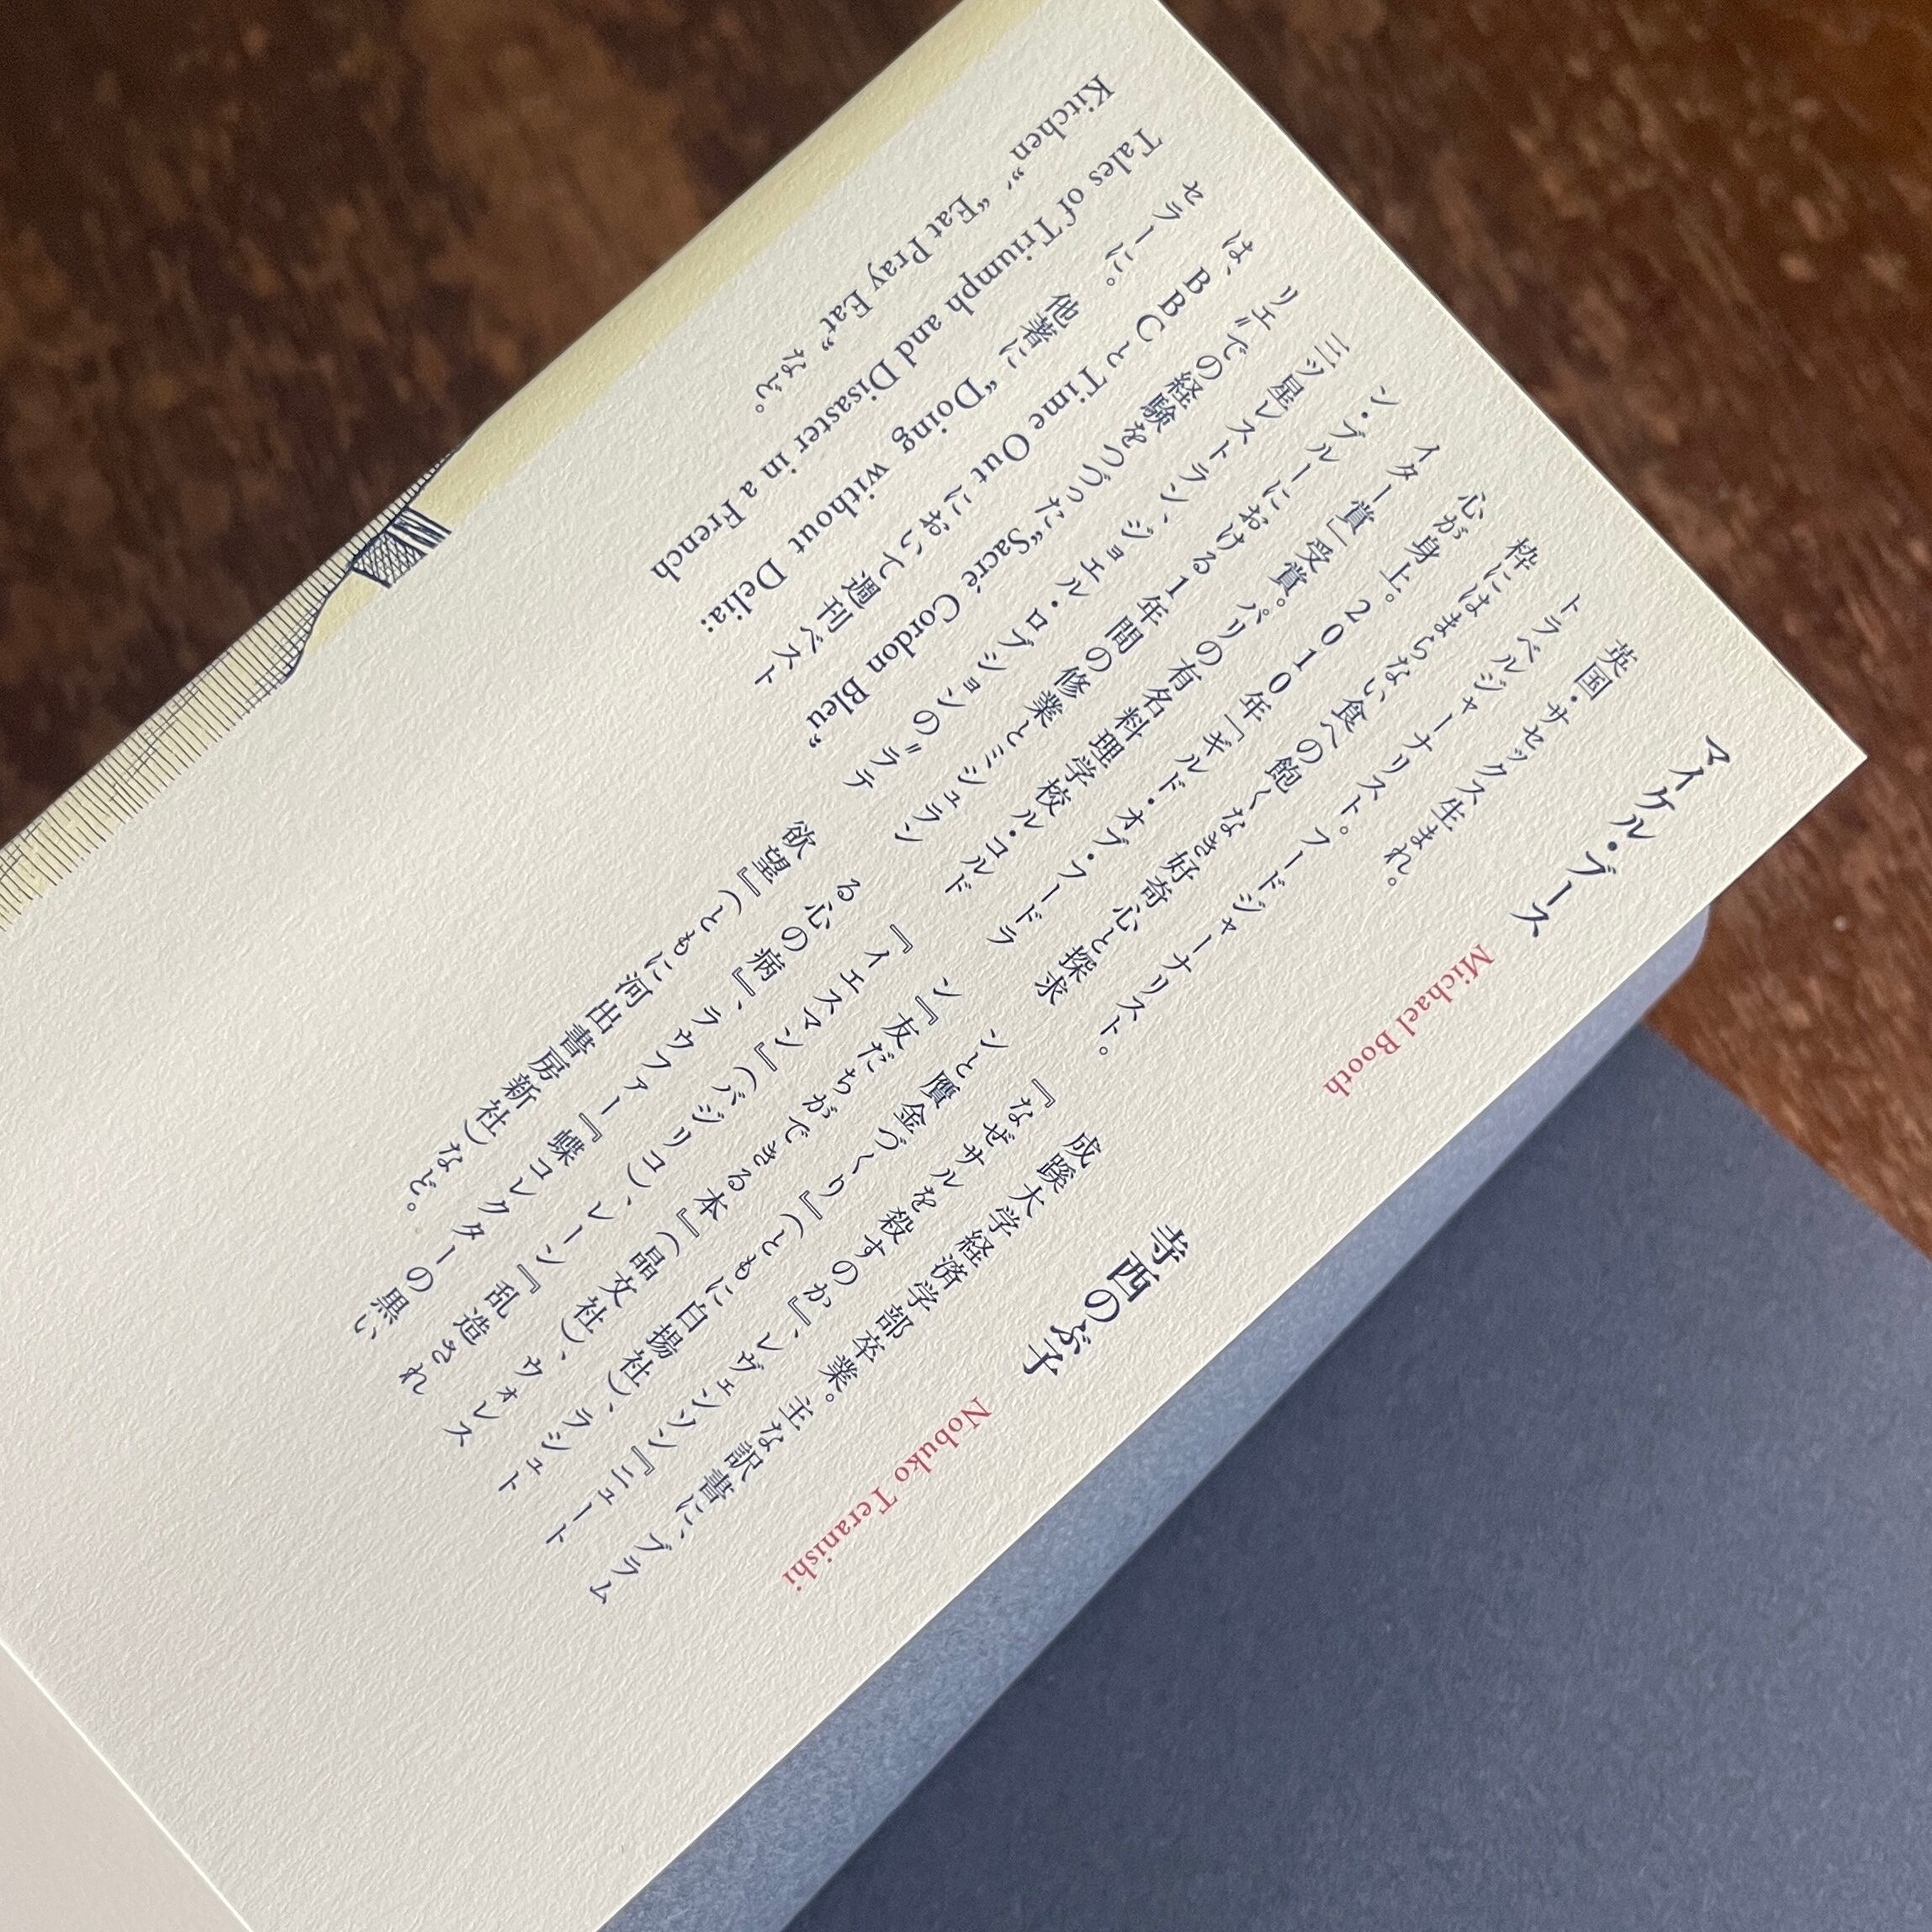 マイケル・ブース
Michael Booth
英国・サセックス生まれ。
トラベルジャーナリスト。フードジャーナリスト。
枠にはまらない食への飽くなき好奇心と探求
心が身上。2010年「ギルド・オブ・フードラ
イター賞」受賞。パリの有名料理学校ル・コルド
ン・ブルーにおける1年間の修業とミシュラン
三ツ星レストラン、ジョエル・ロブションの〝ラテ
リエ〟での経験をつづった“Sacré Cordon Bleu”
は、BBCとTime Outにおいて週刊ベスト
セラーに。他著に“Doing without Delia:
Tales of Triumph and Disaster in a French
Kitchen”、“Eat Pray Eat” など。
寺西のぶ子
Nobuko Teranishi
成蹊大学経済学部卒業。主な訳書に、ブラム
『なぜサルを殺すのか』、レヴェンソン『ニュート
ンと贋金づくり』(ともに白揚社)、ラシュト
ン『友だちができる本』(晶文社)、ウォレス
『イエスマン』(バジリコ)、レーン『乱造され
る心の病』、ラウファー『蝶コレクターの黒い
欲望』(ともに河出書房新社)など。